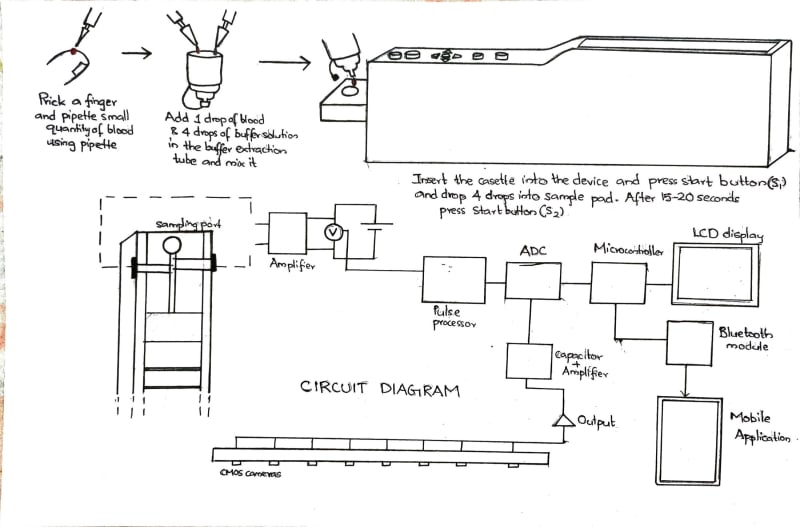 Prick a finger
and pipette small
quantity of blood
using pipette
Add 1 drop of blood
& 4 drops of buffer solution
in the buffer extraction
tube and mix it
Insert the casette into the device and press start button (S1)
and drop 4 drops into sample pad. After 15-20 seconds
press Start button (S2)
Sampling port
Amplifier
V
Pulse
processor
ADC
Microcontroller
LCD display
Bluetooth
module
Capacitor
+
Amplifier
Output
Mobile
Application
CIRCUIT DIAGRAM
CMOS cameras